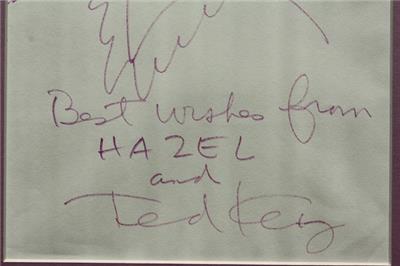 Best wishes from
HAZEL
and
Ted Key